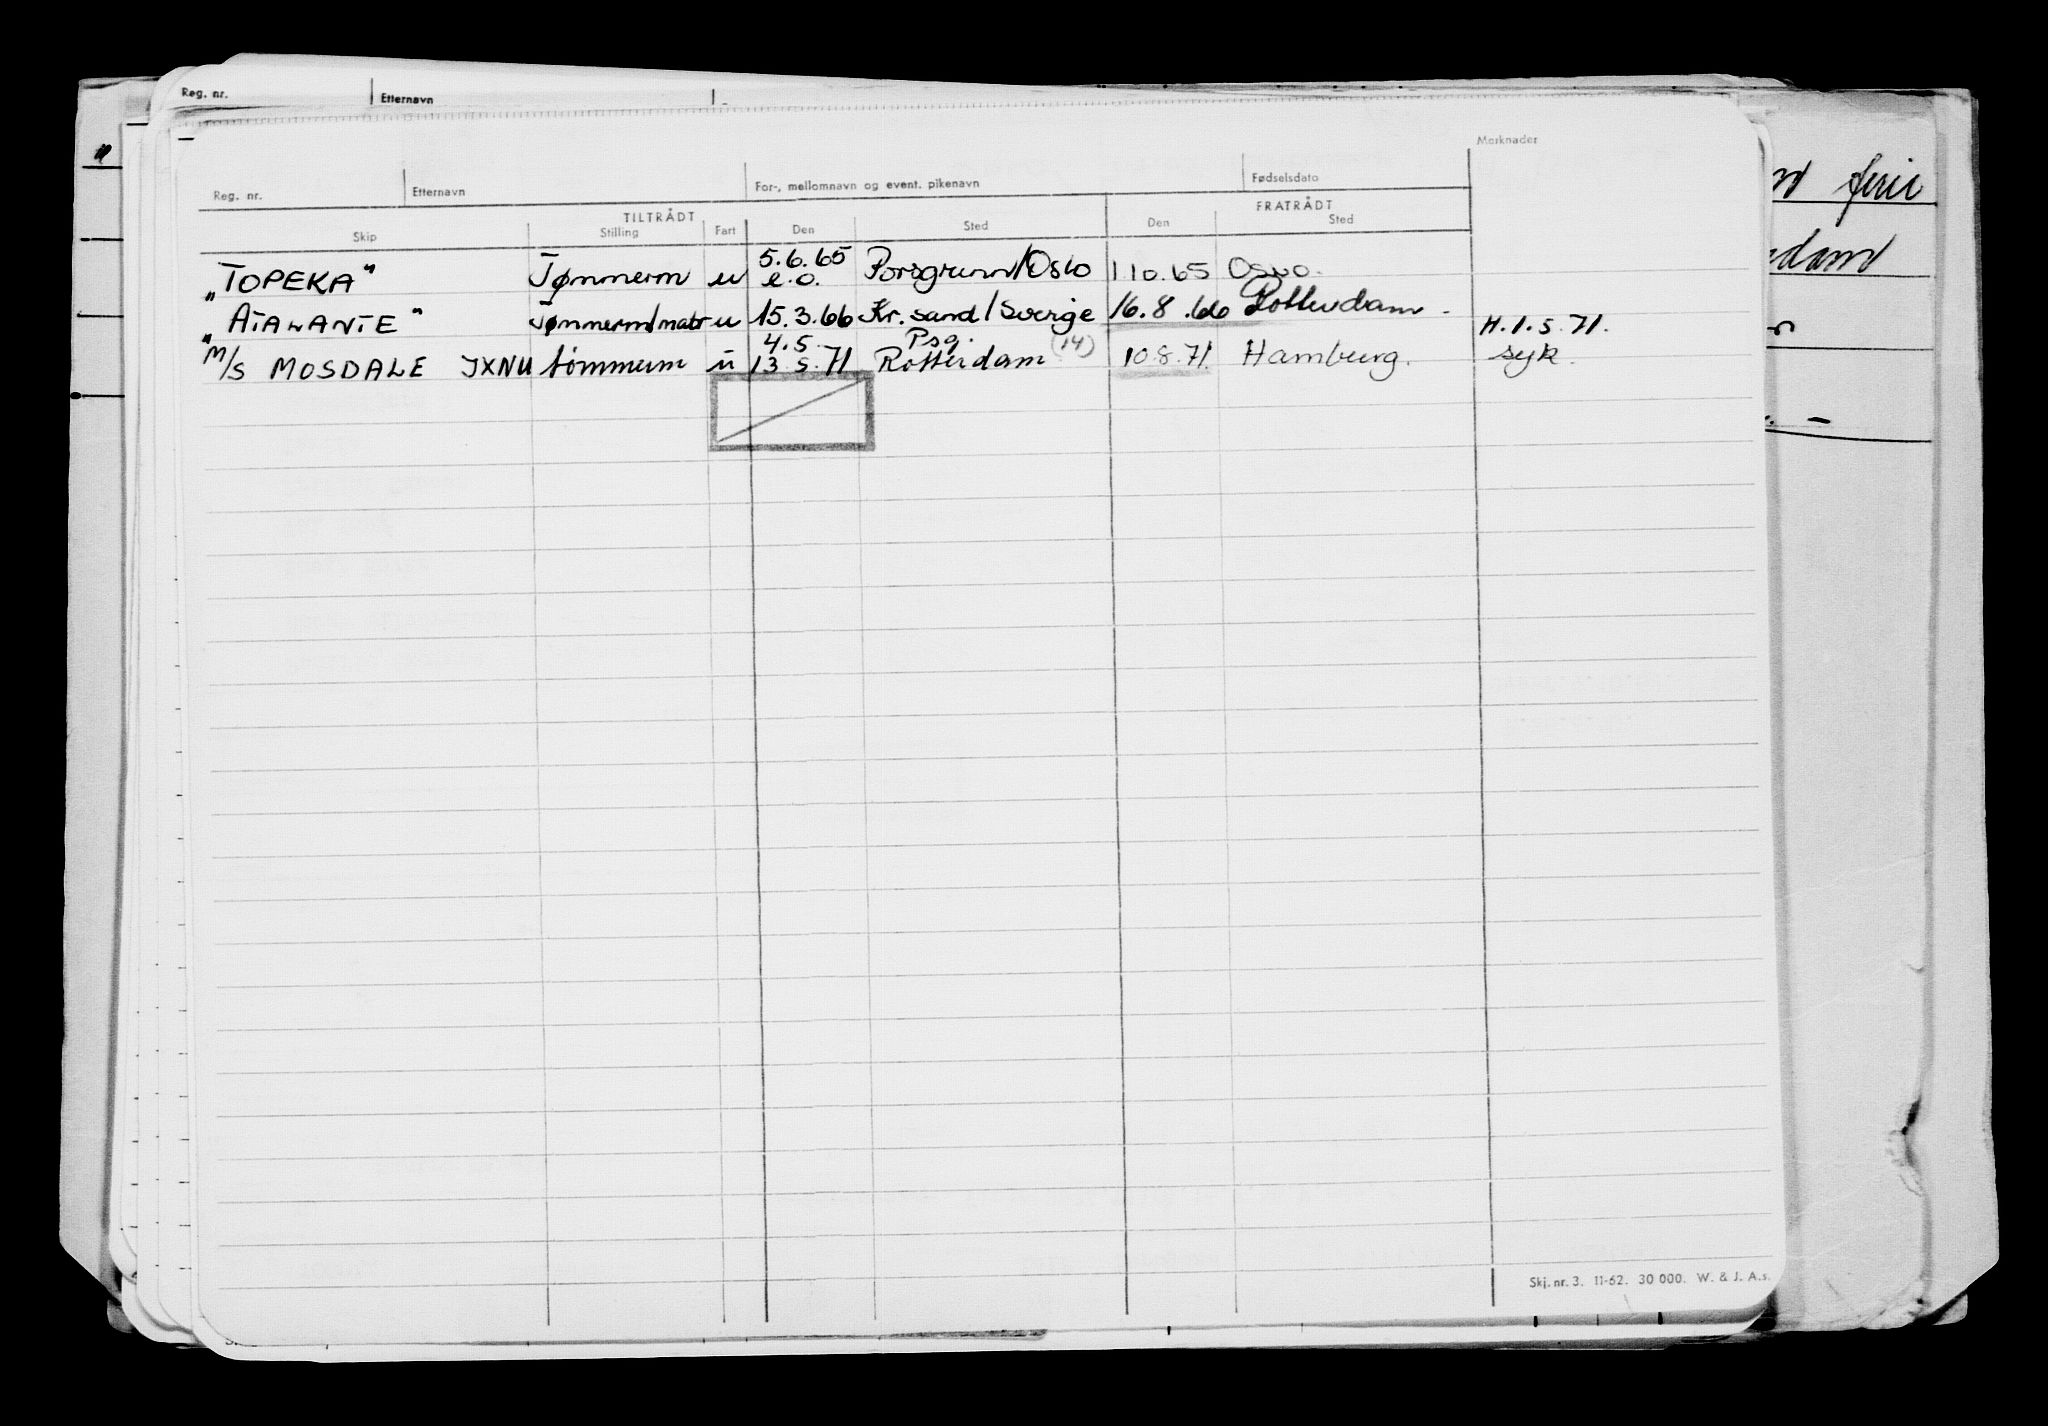 Reg. nr. Etternavn
Merknader
Reg. nr. Etternavn For-, mellomnavn og event. pikenavn Fødselsdato
TILTRÅDT FRATRÅDT
Skip Stilling Fart Den Sted Den Sted
5.6.65
"TOPEKA" Tømmerm u e.o. Porsgrunn/Oslo 1.10.65 Oslo.
"ATALANTE" Tømmerm/matr u 15.3.66 Kr.sand/Sverige 16.8.66 Rotterdam.
4.5. Psg. (14) H.1.5.71.
M/S MOSDALE JXNU tømmerm u 13.5.71 Rotterdam 10.8.71. Hamburg. syk.
ferie
Skj. nr. 3. 11-62. 30 000. W. & J. A.s.